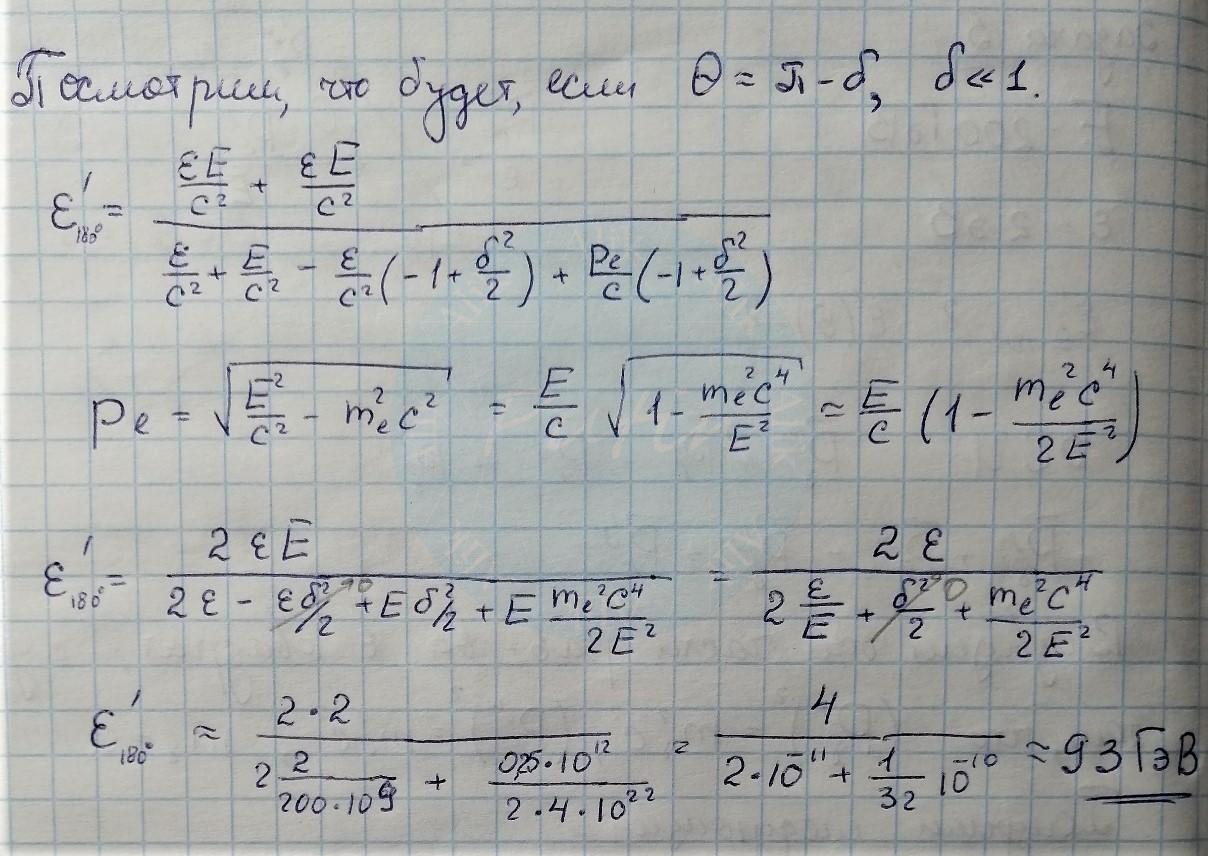 Посмотрим, что будет, если Θ = π - δ, δ << 1.
ε'₁₈₀° = (εE/c² + εE/c²) / (ε/c² + E/c² - ε/c² (-1 + δ²/2) + Pe/c (-1 + δ²/2))
Pe = √(E²/c² - me²c²) = E/c √(1 - me²c⁴/E²) ≈ E/c (1 - me²c⁴/2E²)
ε'₁₈₀° = 2εE / (2ε - εδ²/2→0 + Eδ²/2 + E me²c⁴/2E²) = 2ε / (2 ε/E + δ²/2→0 + me²c⁴/2E²)
ε'₁₈₀° ≈ 2·2 / (2 2/200·10⁹ + 0,25·10¹²/2·4·10²²) = 4 / (2·10⁻¹¹ + 1/32 10⁻¹⁰) ≈ 93 ГэВ